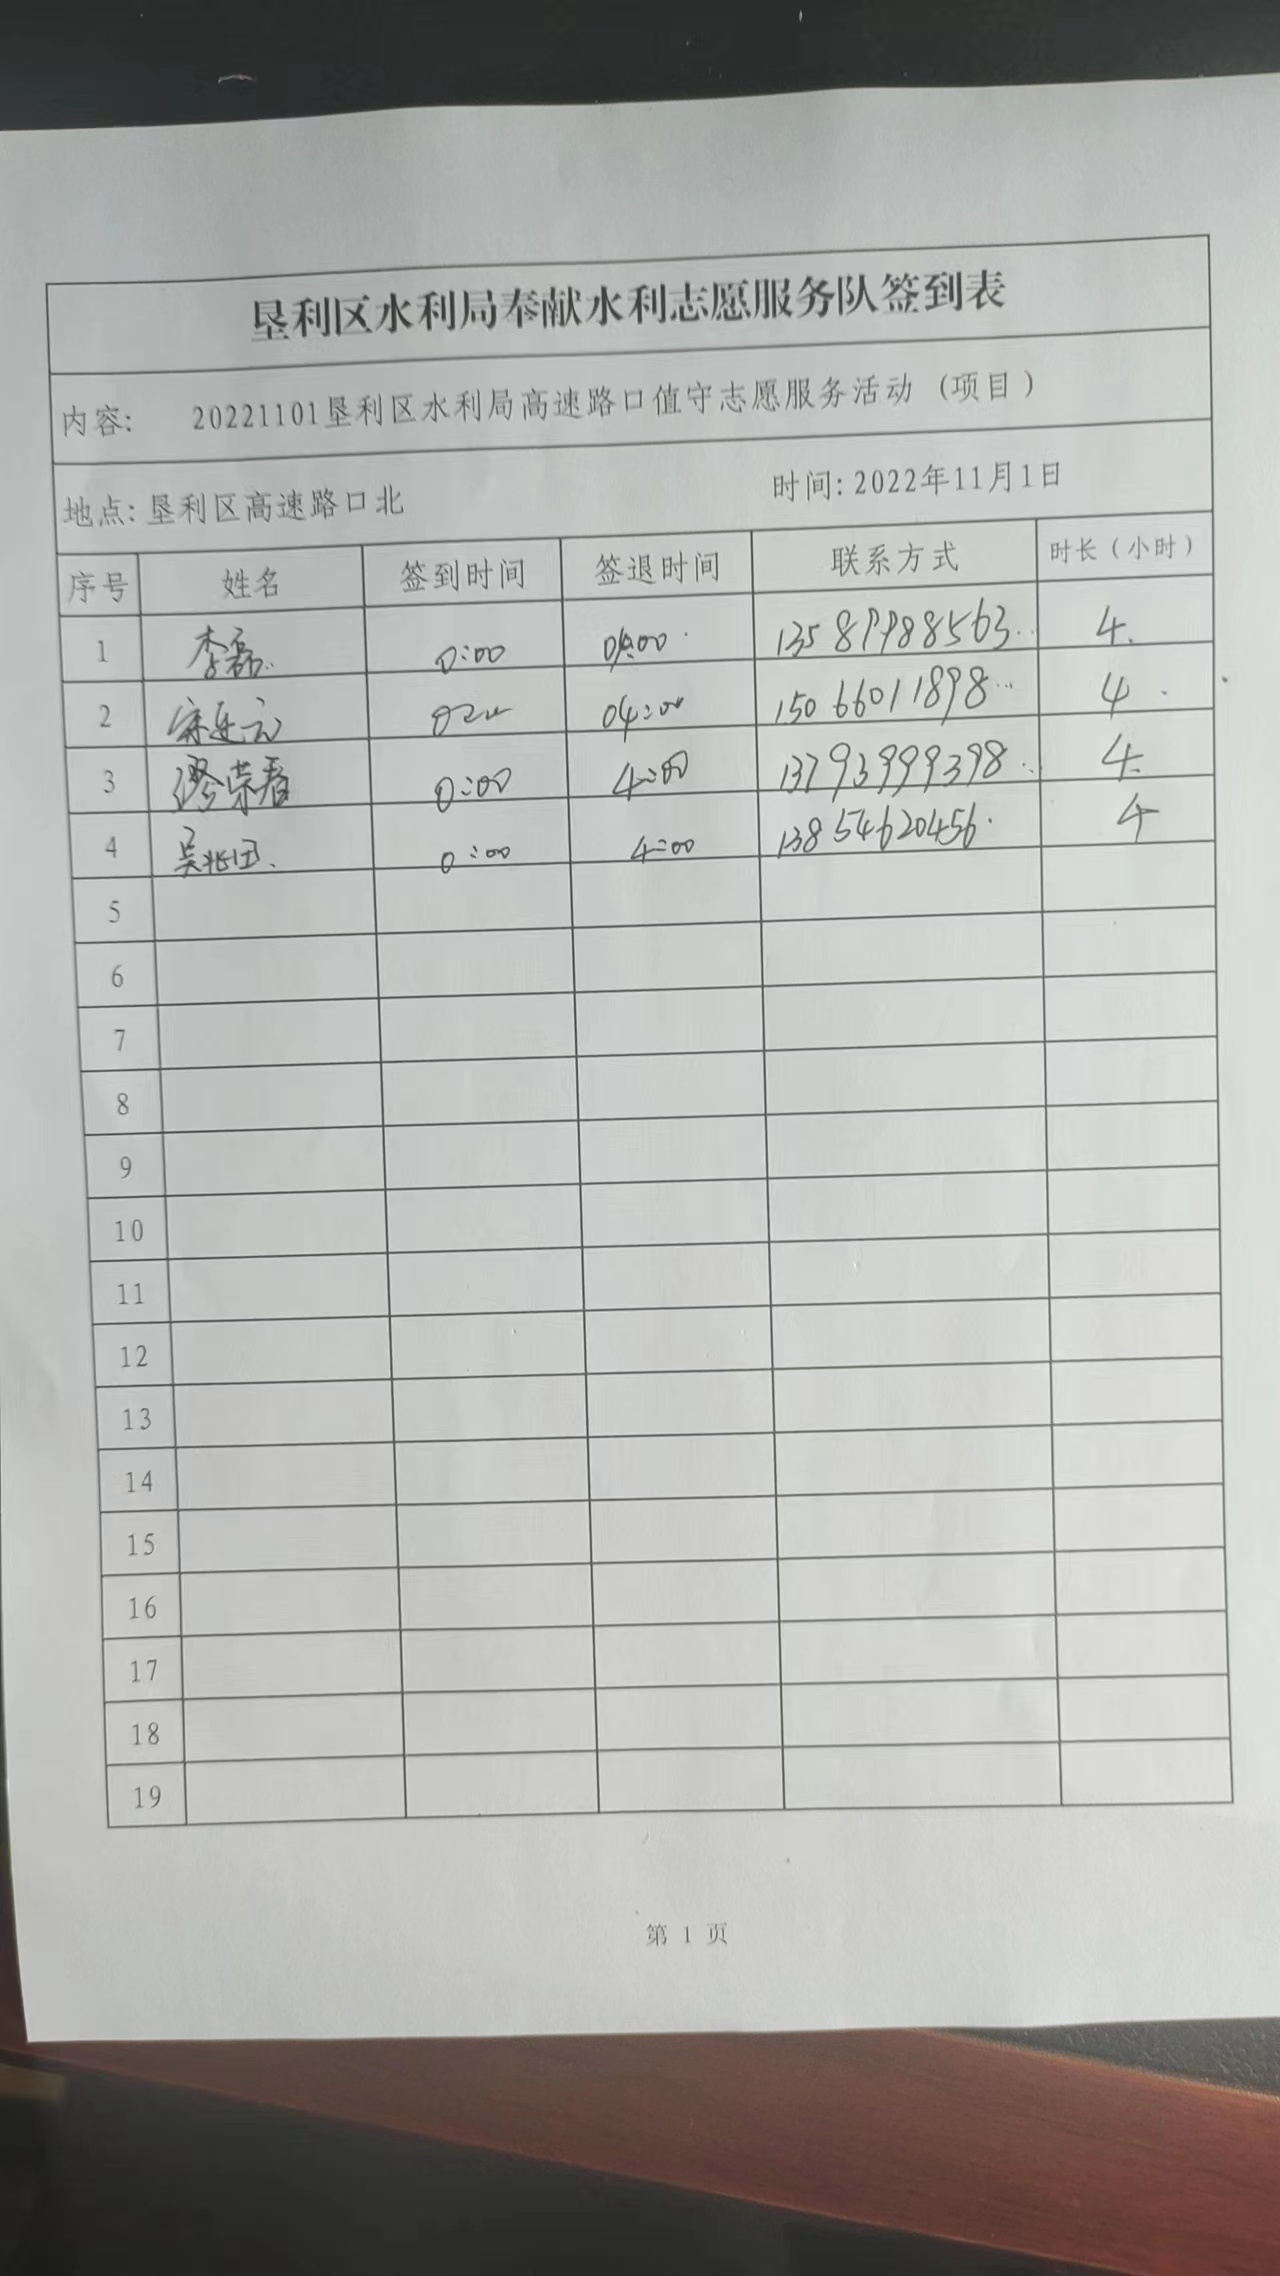 垦利区水利局奉献水利志愿服务队签到表
内容: 20221101垦利区水利局高速路口值守志愿服务活动 (项目)
地点: 垦利区高速路口北 时间: 2022年11月1日
序号 姓名 签到时间 签退时间 联系方式 时长（小时）
1 李磊 0:00 04:00 13589988563 4
2 04:00 15066011898 4
3 缪荣春 0:00 4:00 13793999398 4
4 吴兆田 0:00 4:00 13854620456 4
5
6
7
8
9
10
11
12
13
14
15
16
17
18
19
第 1 页